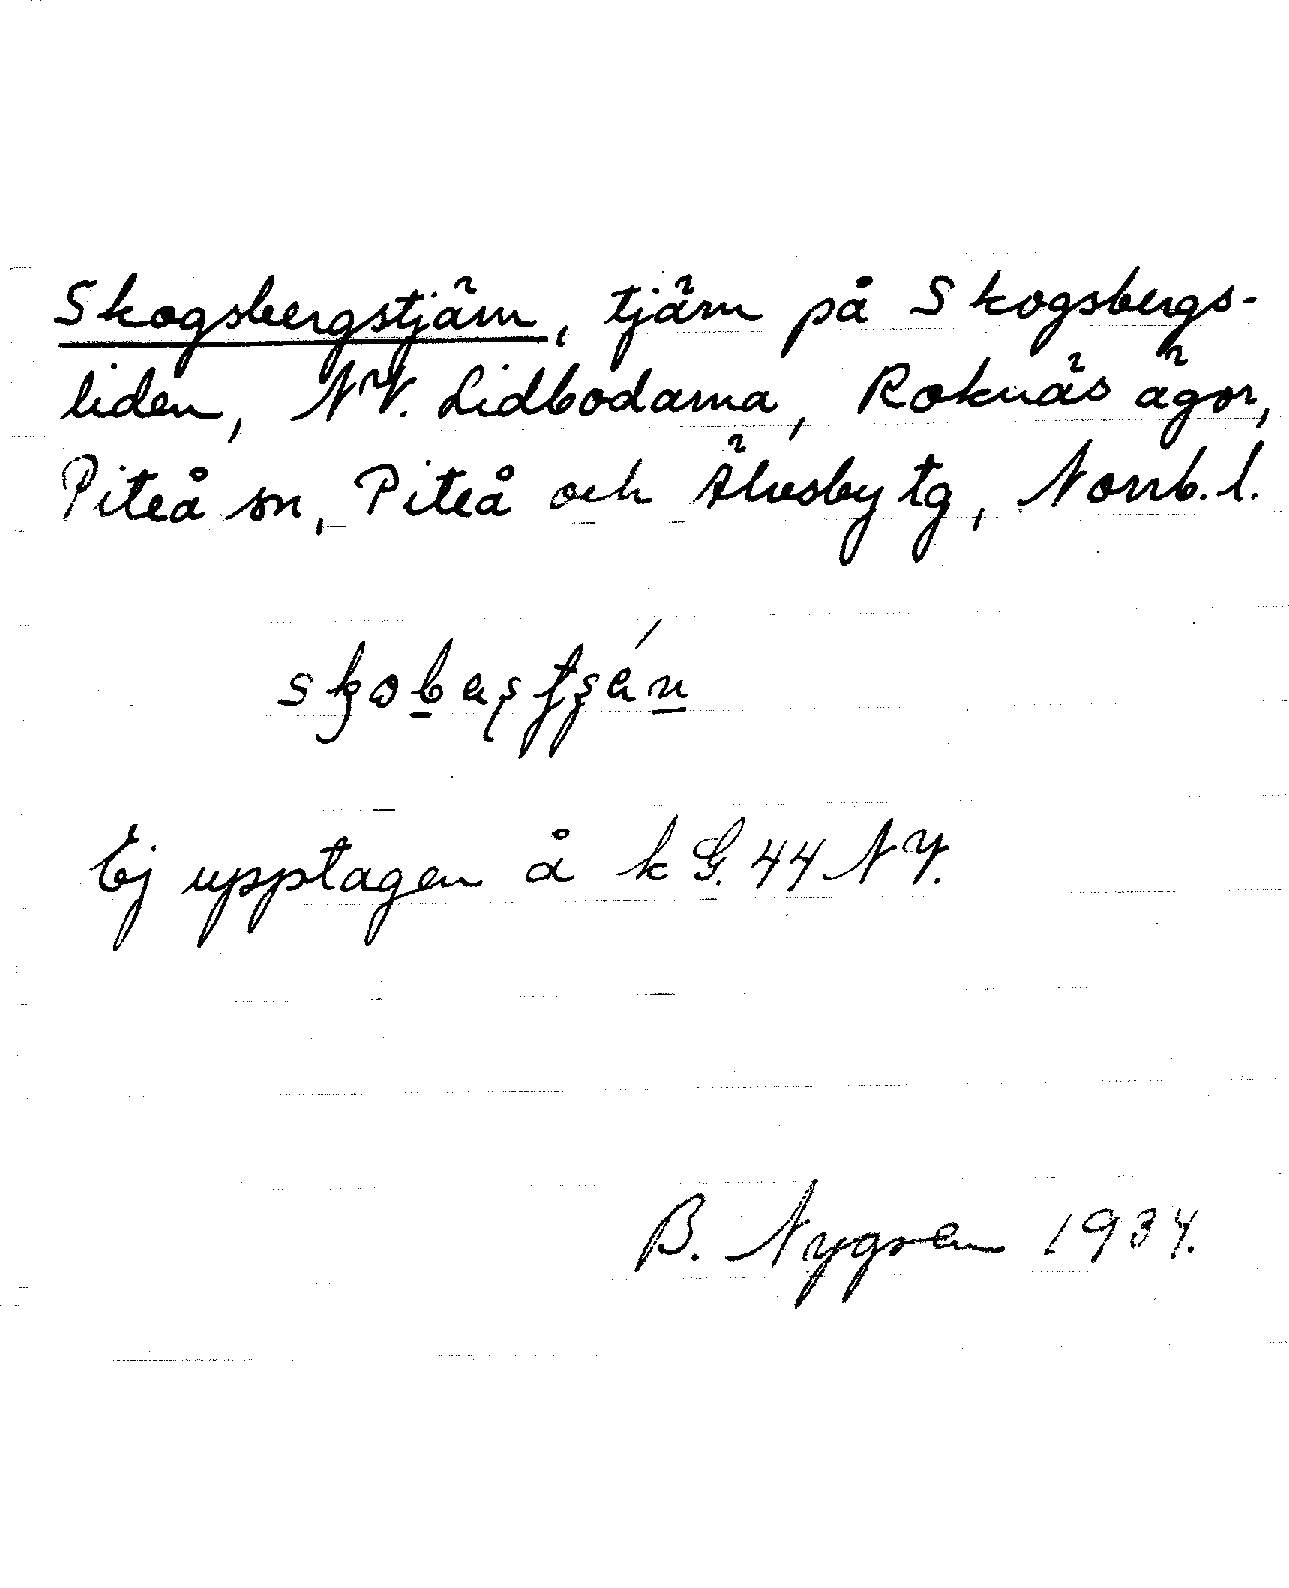 Skogsbergstjärn, tjärn på Skogsbergs-
liden, NV. Lidbodarna, Roknäs ägor,
Piteå sn, Piteå och Älvsby tg, Norrb. l.
Ej upptagen å k G. 44 NV.
B. Nygren 1934.